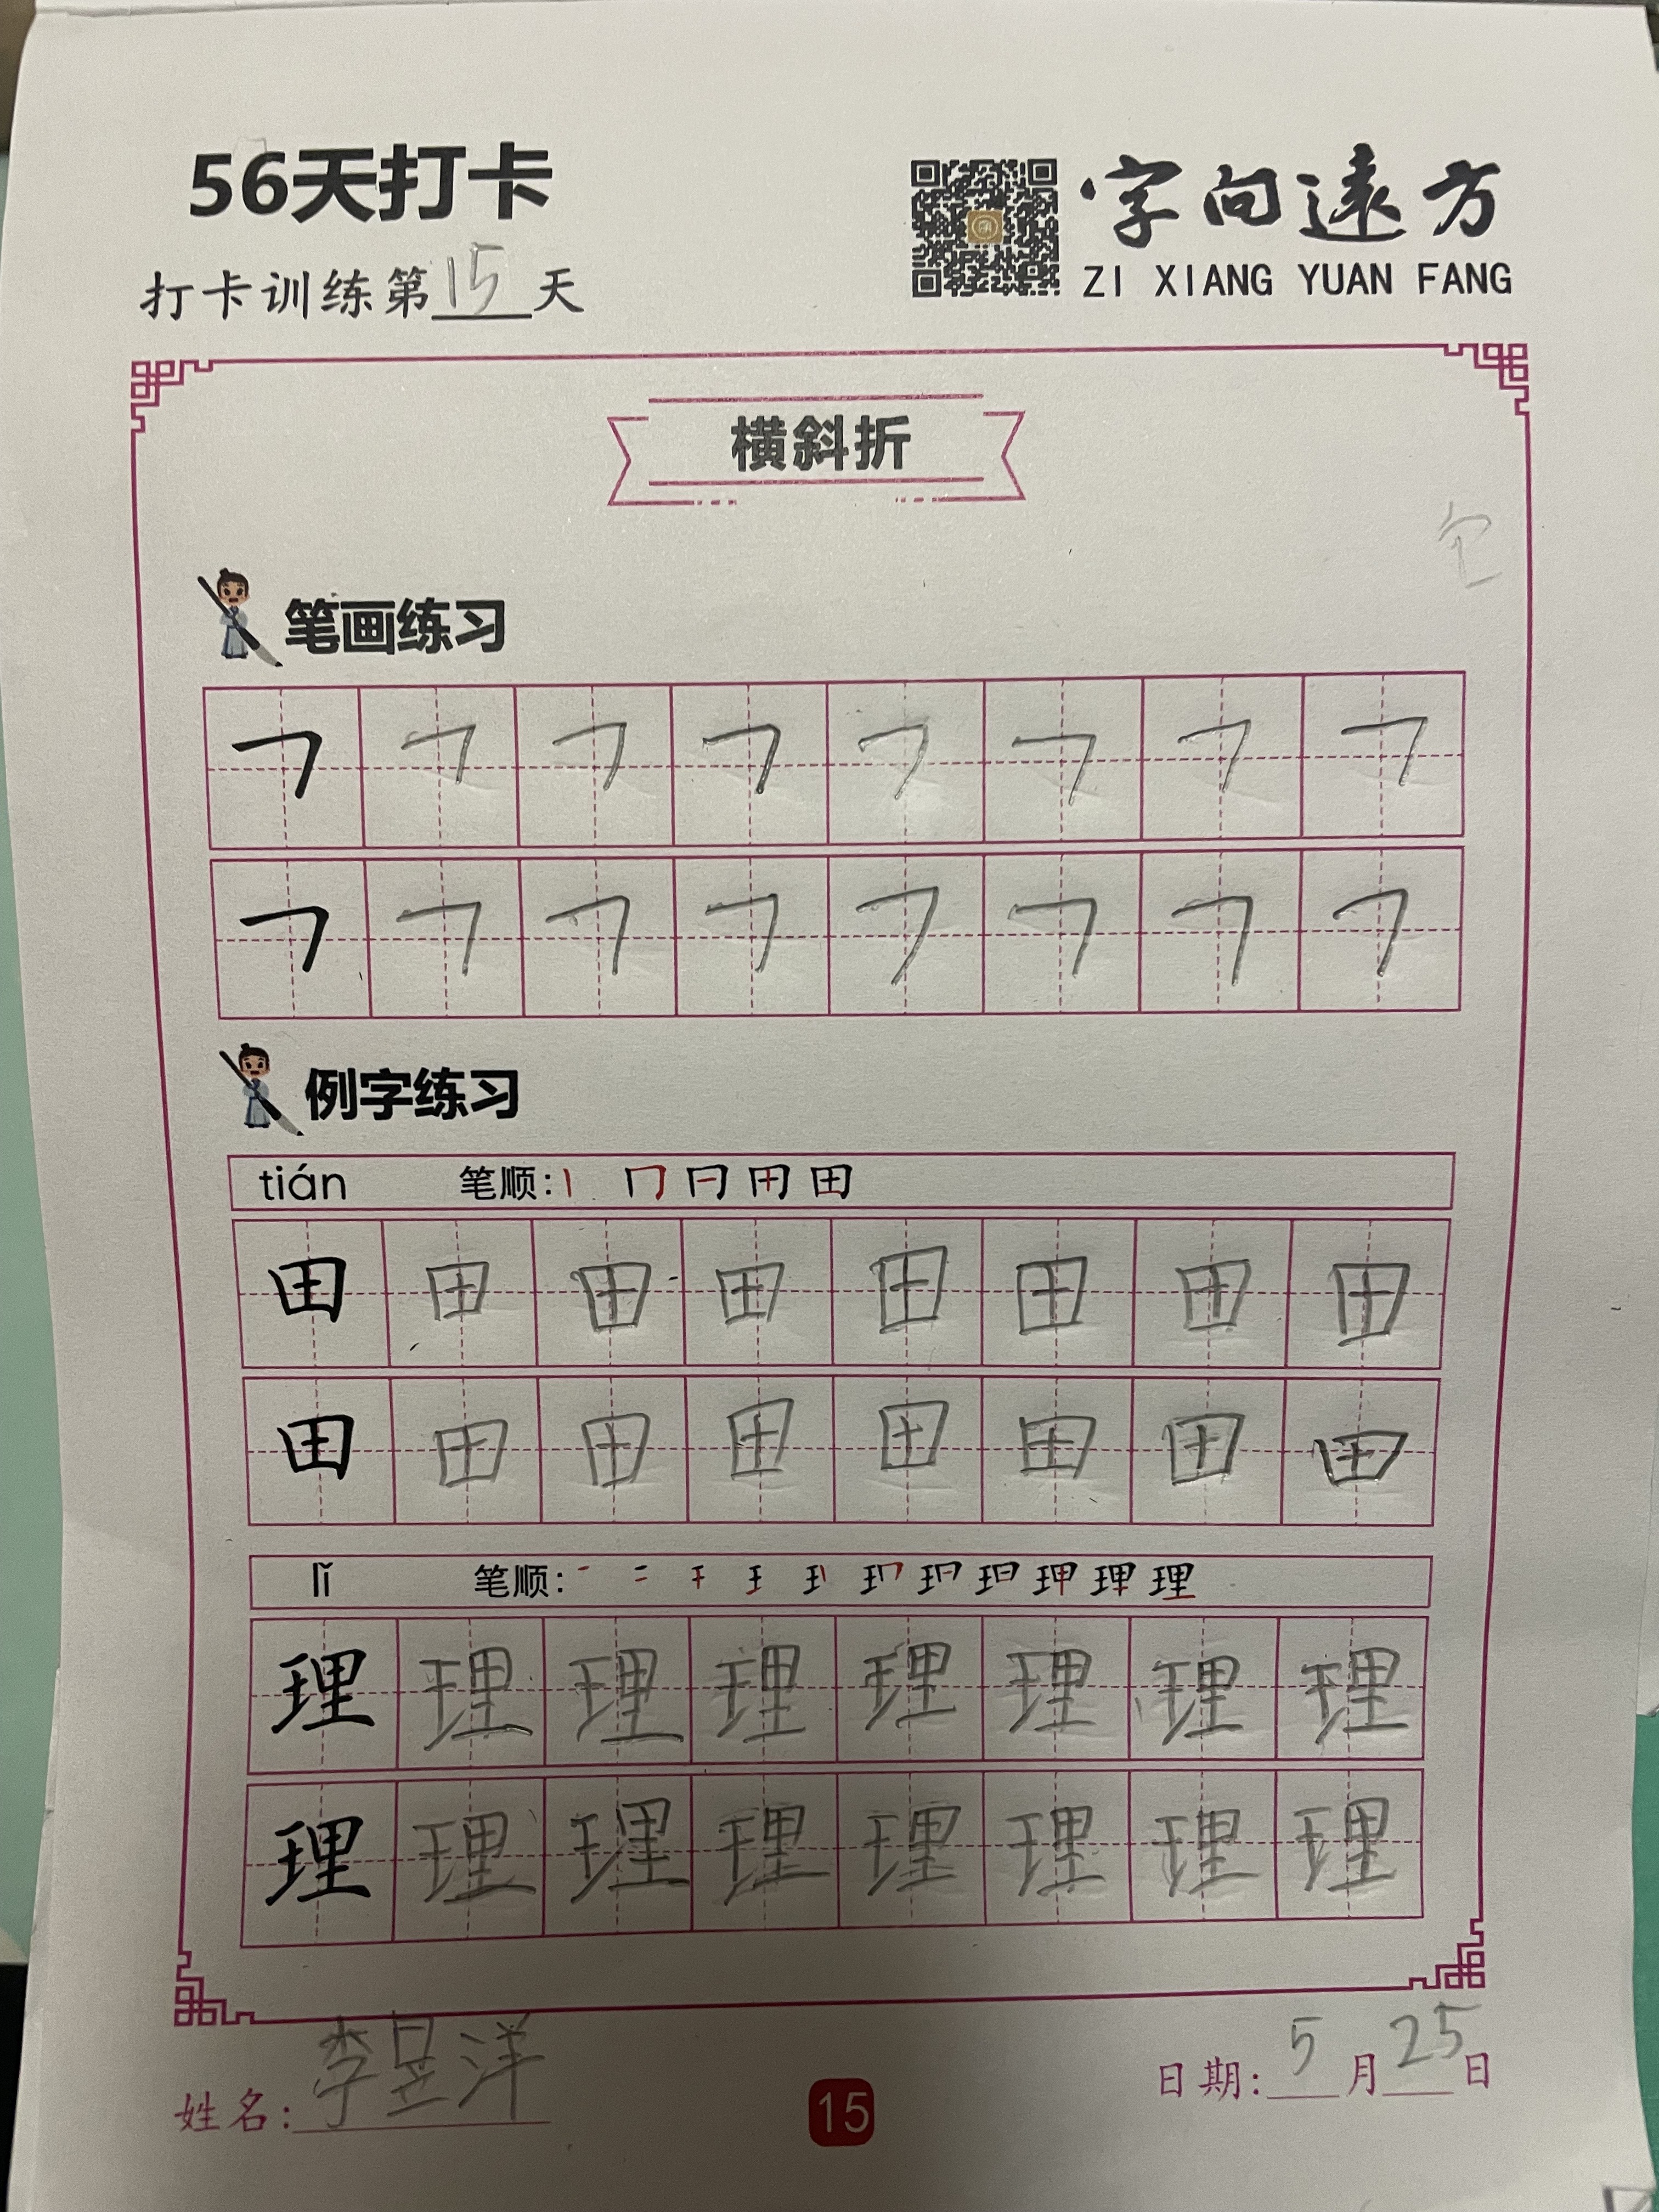 56天打卡
字向远方
ZI XIANG YUAN FANG
打卡训练第15天
横斜折
笔画练习
㇕ ㇕ ㇕ ㇕ ㇕ ㇕ ㇕ ㇕
㇕ ㇕ ㇕ ㇕ ㇕ ㇕ ㇕ ㇕
例字练习
tián 笔顺:
田 田 田 田 田 田 田 田
田 田 田 田 田 田 田 田
lǐ 笔顺:
理 理 理 理 理 理 理 理
理 理 理 理 理 理 理 理
姓名:李昱洋
15
日期:5月25日